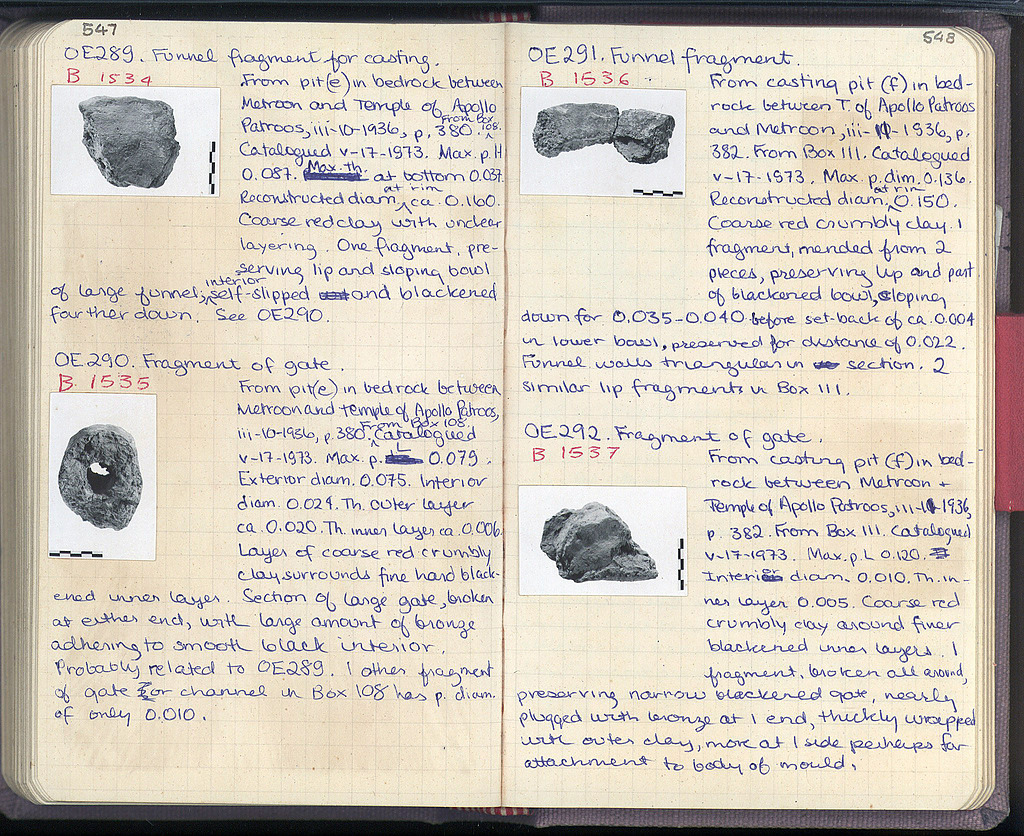 547
OE289. Funnel fragment for casting.
B 1534
From pit(e) in bedrock between
Metroon and Temple of Apollo
Patroos, iii-10-1936, p. 380. From Box 108.
Catalogued v-17-1973. Max. p. H
0.087. Max. Th. at bottom 0.037.
Reconstructed diam. at rim ca. 0.160.
Coarse red clay with unclear
layering. One fragment, pre-
serving lip and sloping bowl
of large funnel; interior self-slipped and blackened
farther down. See OE290.
OE290. Fragment of gate.
B 1535
From pit(e) in bedrock between
Metroon and Temple of Apollo Patroos,
iii-10-1936, p. 380. From Box 108. Catalogued
v-17-1973. Max. p. L 0.079.
Exterior diam. 0.075. Interior
diam. 0.024. Th. outer layer
ca. 0.020. Th. inner layer ca. 0.006.
Layer of coarse red crumbly
clay surrounds fine hard black-
ened inner layer. Section of large gate, broken
at either end, with large amount of bronze
adhering to smooth black interior.
Probably related to OE289. 1 other fragment
of gate or channel in Box 108 has p. diam.
of only 0.010.
548
OE291. Funnel fragment.
B 1536
From casting pit (f) in bed-
rock between T. of Apollo Patroos
and Metroon, iii-11-1936, p.
382. From Box 111. Catalogued
v-17-1973. Max p. dim. 0.136.
Reconstructed diam. at rim 0.150.
Coarse red crumbly clay. 1
fragment, mended from 2
pieces, preserving lip and part
of blackened bowl, sloping
down for 0.035-0.040 before set-back of ca. 0.004
in lower bowl, preserved for distance of 0.022.
Funnel walls triangular in section. 2
similar lip fragments in Box 111.
OE292. Fragment of gate.
B 1537
From casting pit (f) in bed-
rock between Metroon +
Temple of Apollo Patroos, iii-11-1936,
p. 382. From Box 111. Catalogued
v-17-1973. Max. p. L 0.120.
Interior diam. 0.010. Th. in-
ner layer 0.005. Coarse red
crumbly clay around finer
blackened inner layers. 1
fragment, broken all around,
preserving narrow blackened gate, nearly
plugged with bronze at 1 end, thickly wrapped
with outer clay, more at 1 side perhaps for
attachment to body of mould.